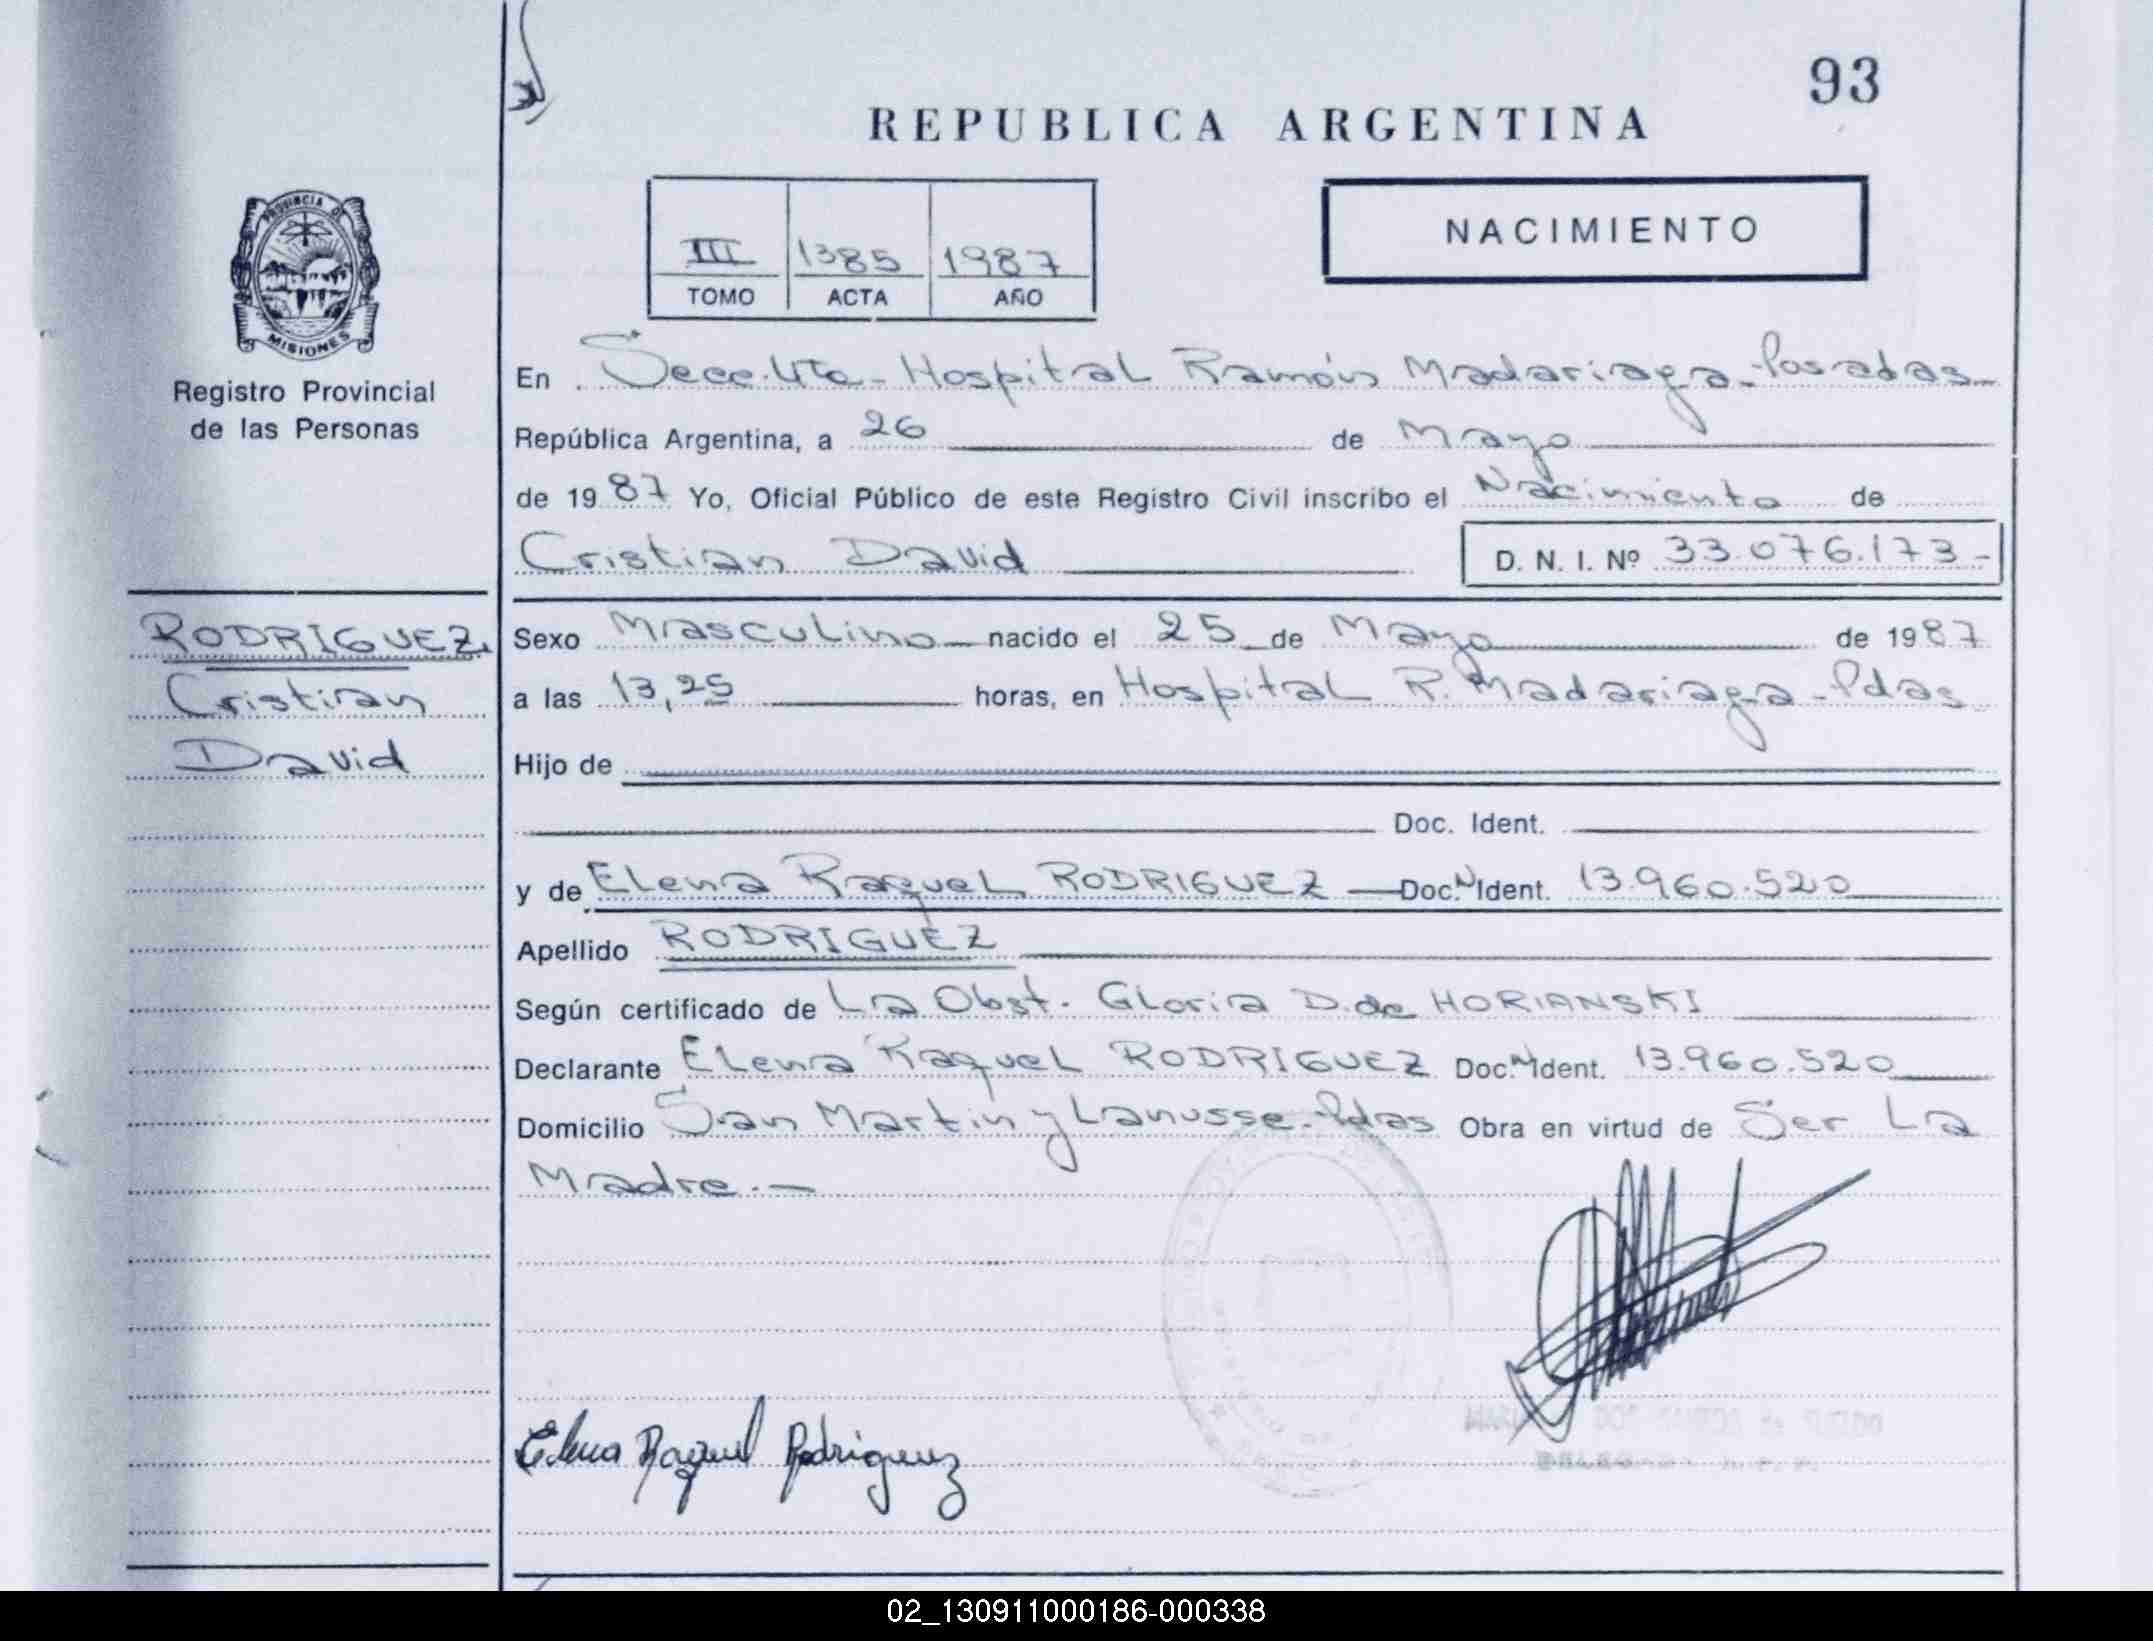 93
REPUBLICA ARGENTINA
III 1385 1987
TOMO ACTA AÑO
NACIMIENTO
PROVINCIA DE
MISIONES
Registro Provincial
de las Personas
En Secc. 4ta - Hospital Ramón Madariaga - Posadas
República Argentina, a 26 de Mayo
de 1987 Yo, Oficial Público de este Registro Civil inscribo el Nacimiento de
Cristian David D. N. I. Nº 33.076.173-
RODRIGUEZ,
Cristian
David
Sexo Masculino nacido el 25 de Mayo de 1987
a las 13,25 horas, en Hospital R. Madariaga - Pdas
Hijo de
Doc. Ident.
y de Elena Raquel RODRIGUEZ Doc. N Ident. 13.960.520
Apellido RODRIGUEZ
Según certificado de La Obst. Gloria D. de HORIANSKI
Declarante Elena Raquel RODRIGUEZ Doc. N Ident. 13.960.520
Domicilio San Martin y Lanusse - Pdas Obra en virtud de Ser La
Madre.-
Elena Raquel Rodriguez
02_130911000186-000338